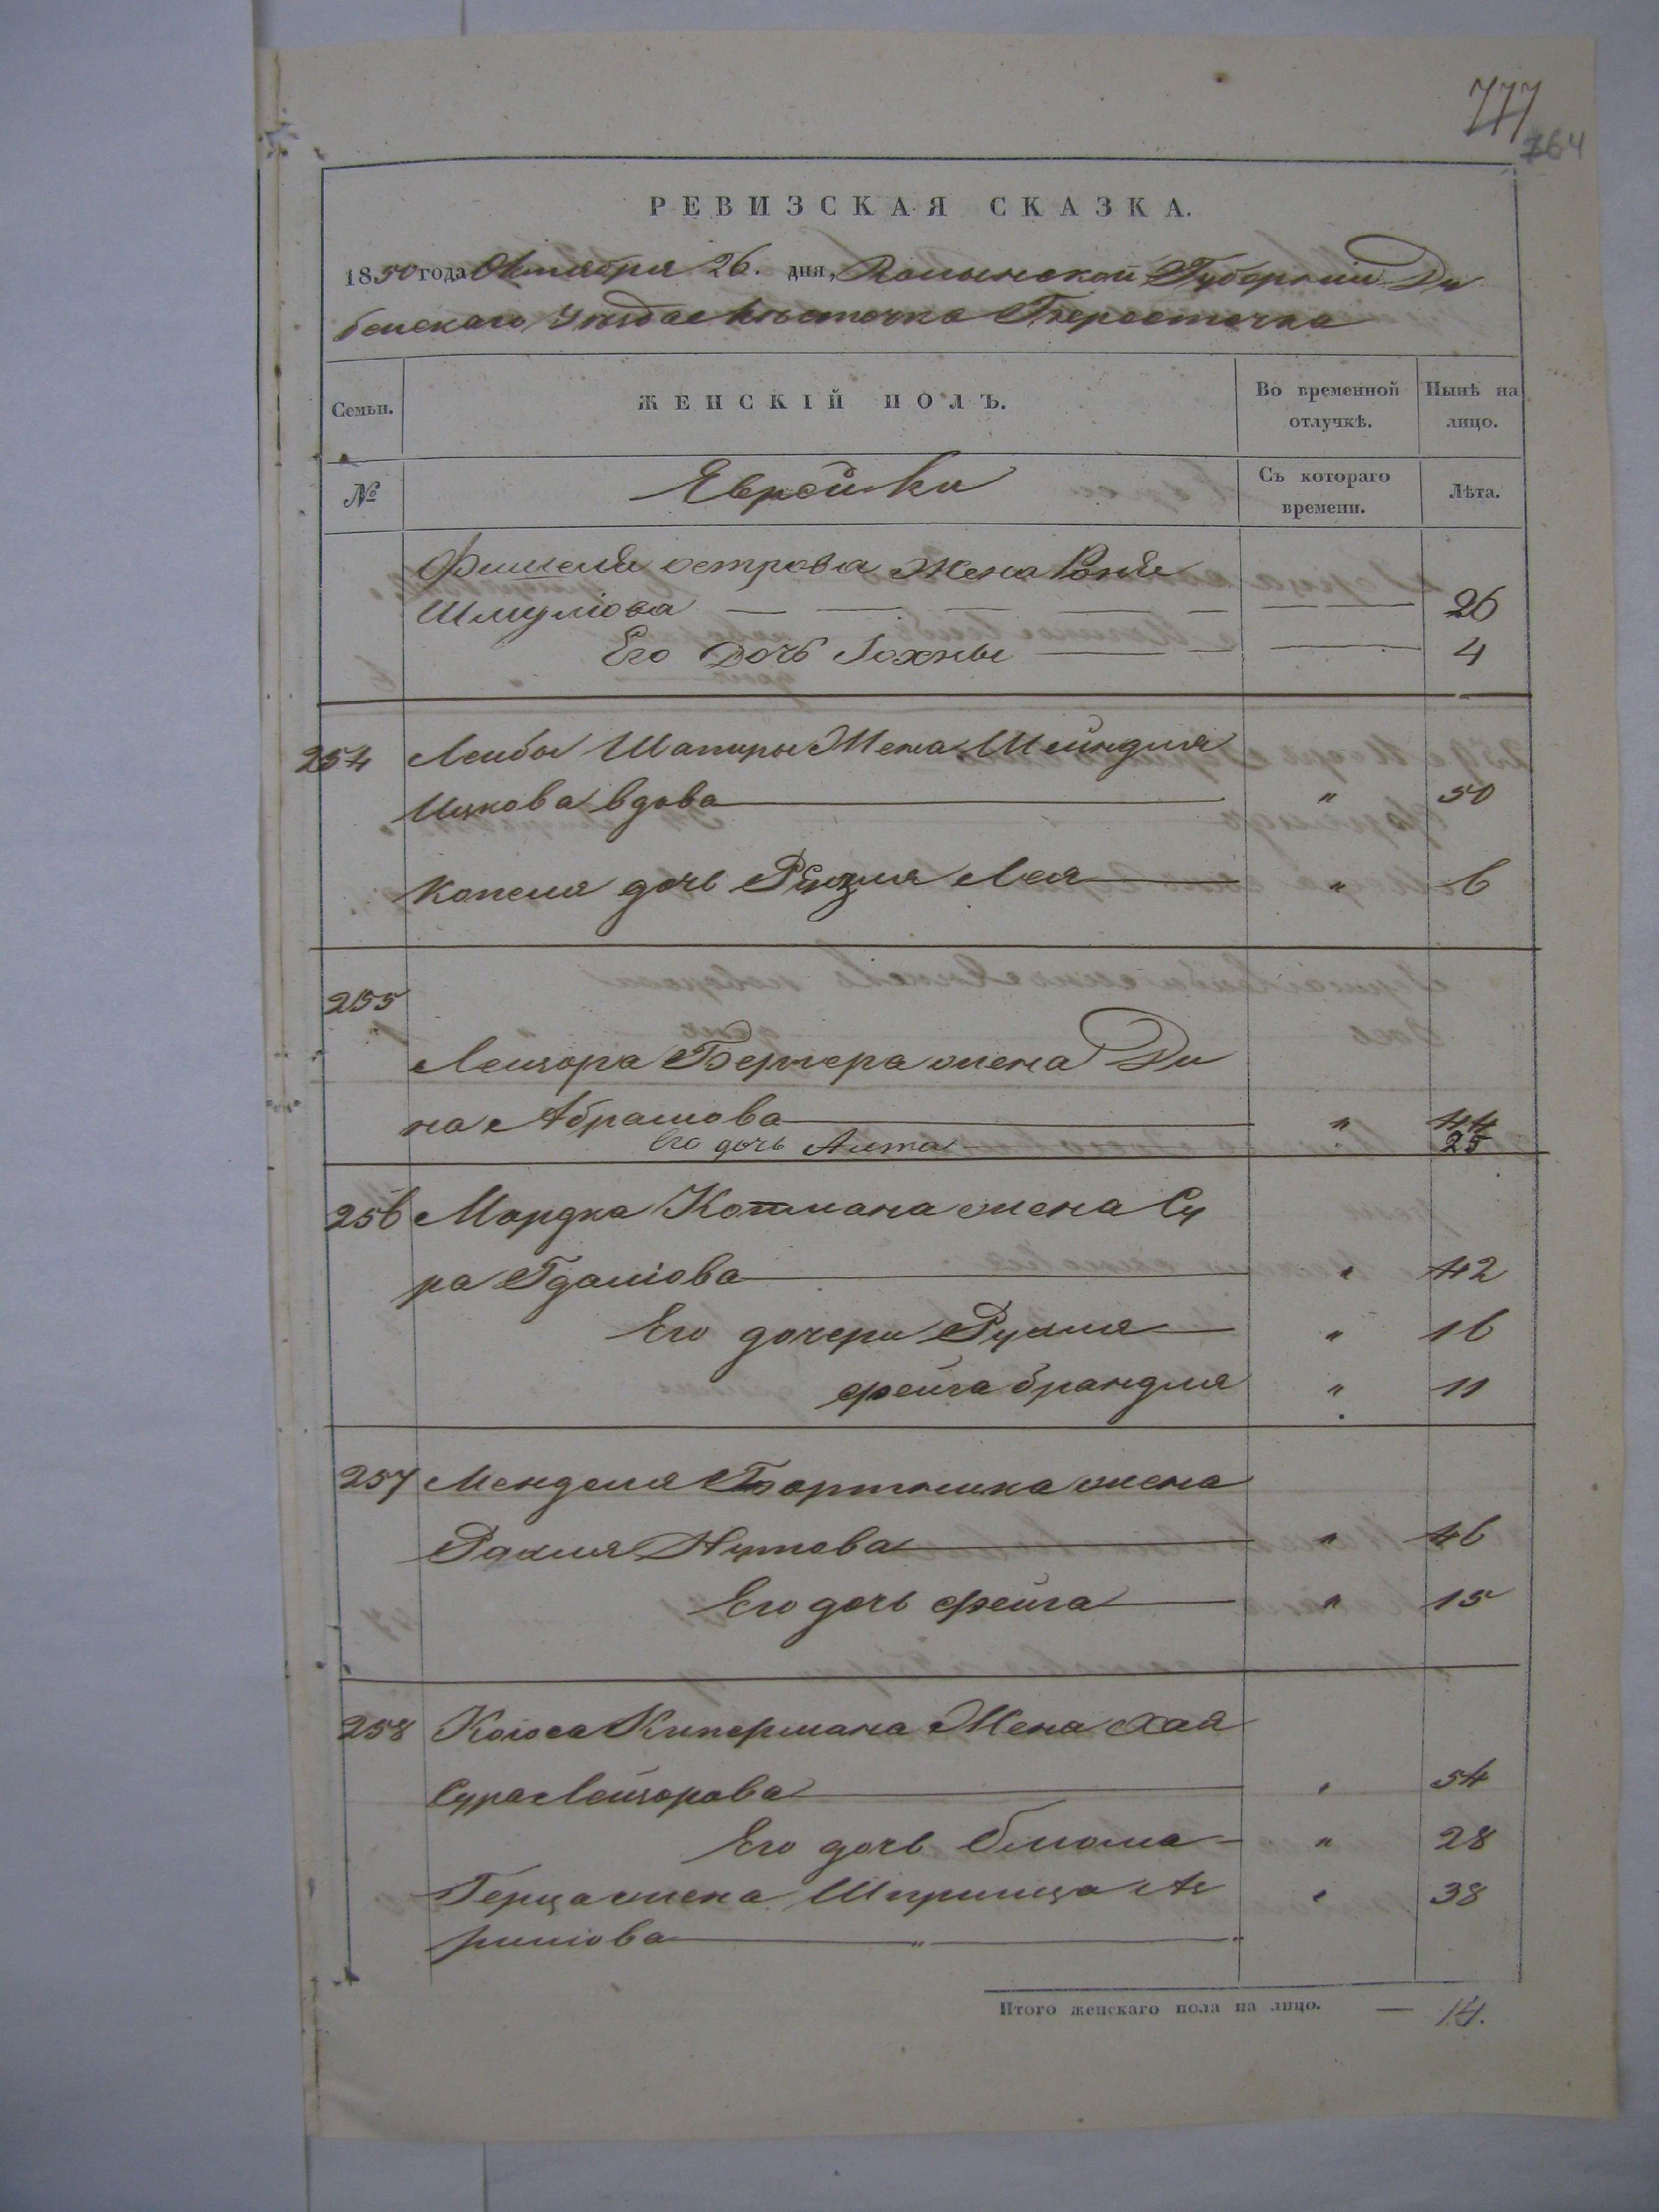 777
764
РЕВИЗСКАЯ СКАЗКА.
1850 года Октября 26. дня, Волынской Губернии Ду
бенскаго Уезда Местечка Берестечка
Семьи.
ЖЕНСКІЙ ПОЛЪ.
Во временной отлучкѣ.
Нынѣ на лицо.
№
Еврейки
Съ котораго времени.
Лѣта.
Фишеля острова Жена
Шмулiова — — — — — 26
Его Дочь Рохны — — 4
254 Лейбы Шапиры Жена Шейндля
Ицкова вдова " 50
Копеля дочь Рейзля Лея " 6
255
Лейзора Бергера жена Ди
на Абрамова " 44
Его дочь Алта " 25
256 Мордка Котмана жена Су
ра Гдалiова " 42
Его дочери Рухля " 16
фейга брандля " 11
257 Менделя Бортника жена
Рахля Нутова " 46
Его дочь фейга " 15
258 Кагоса Кипермана Жена Хая
Сура Лейзорова " 54
Его дочь блюма " 28
Герца жена Шпринца Ая " 38
рилiова "
Итого женскаго пола на лицо. — 14.